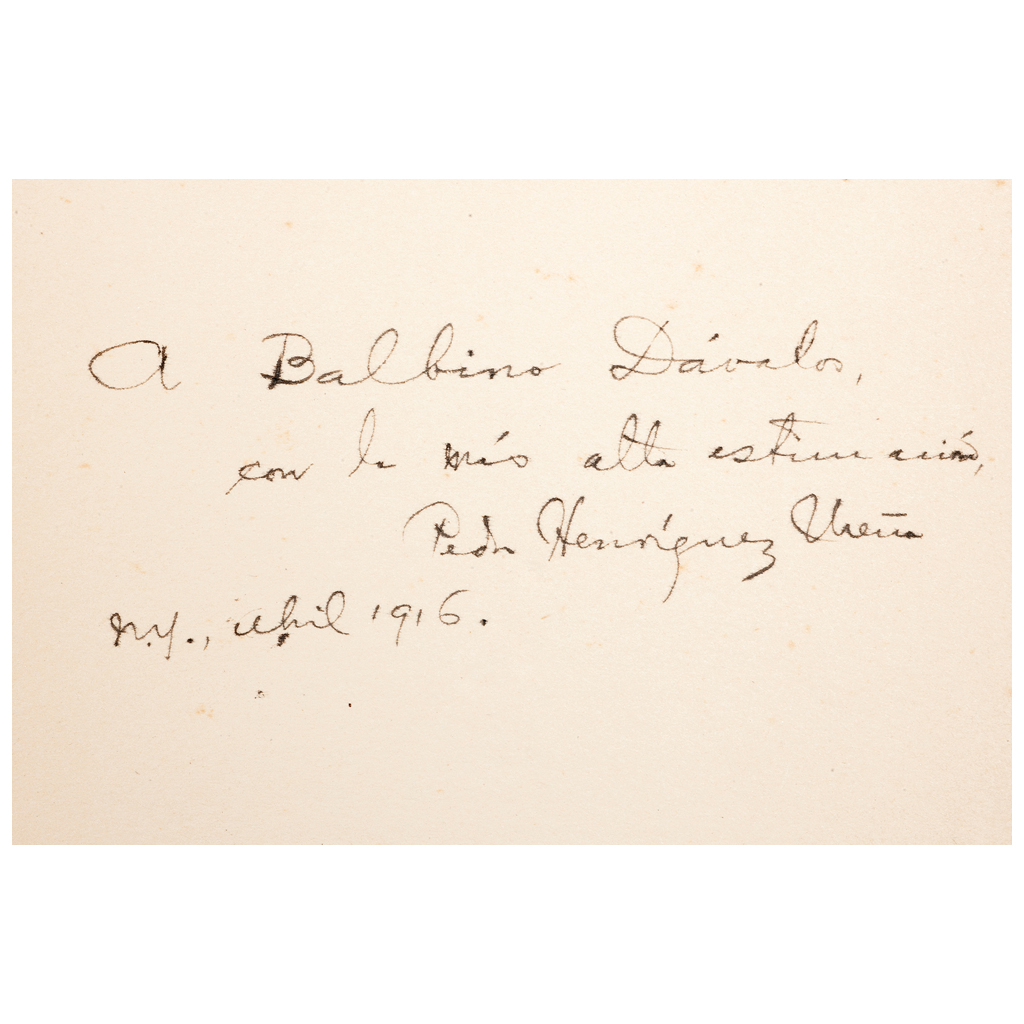 A Balbino Dávalos,
con la más alta estimación,
Pedro Henríquez Ureña
N.Y., abril 1916.